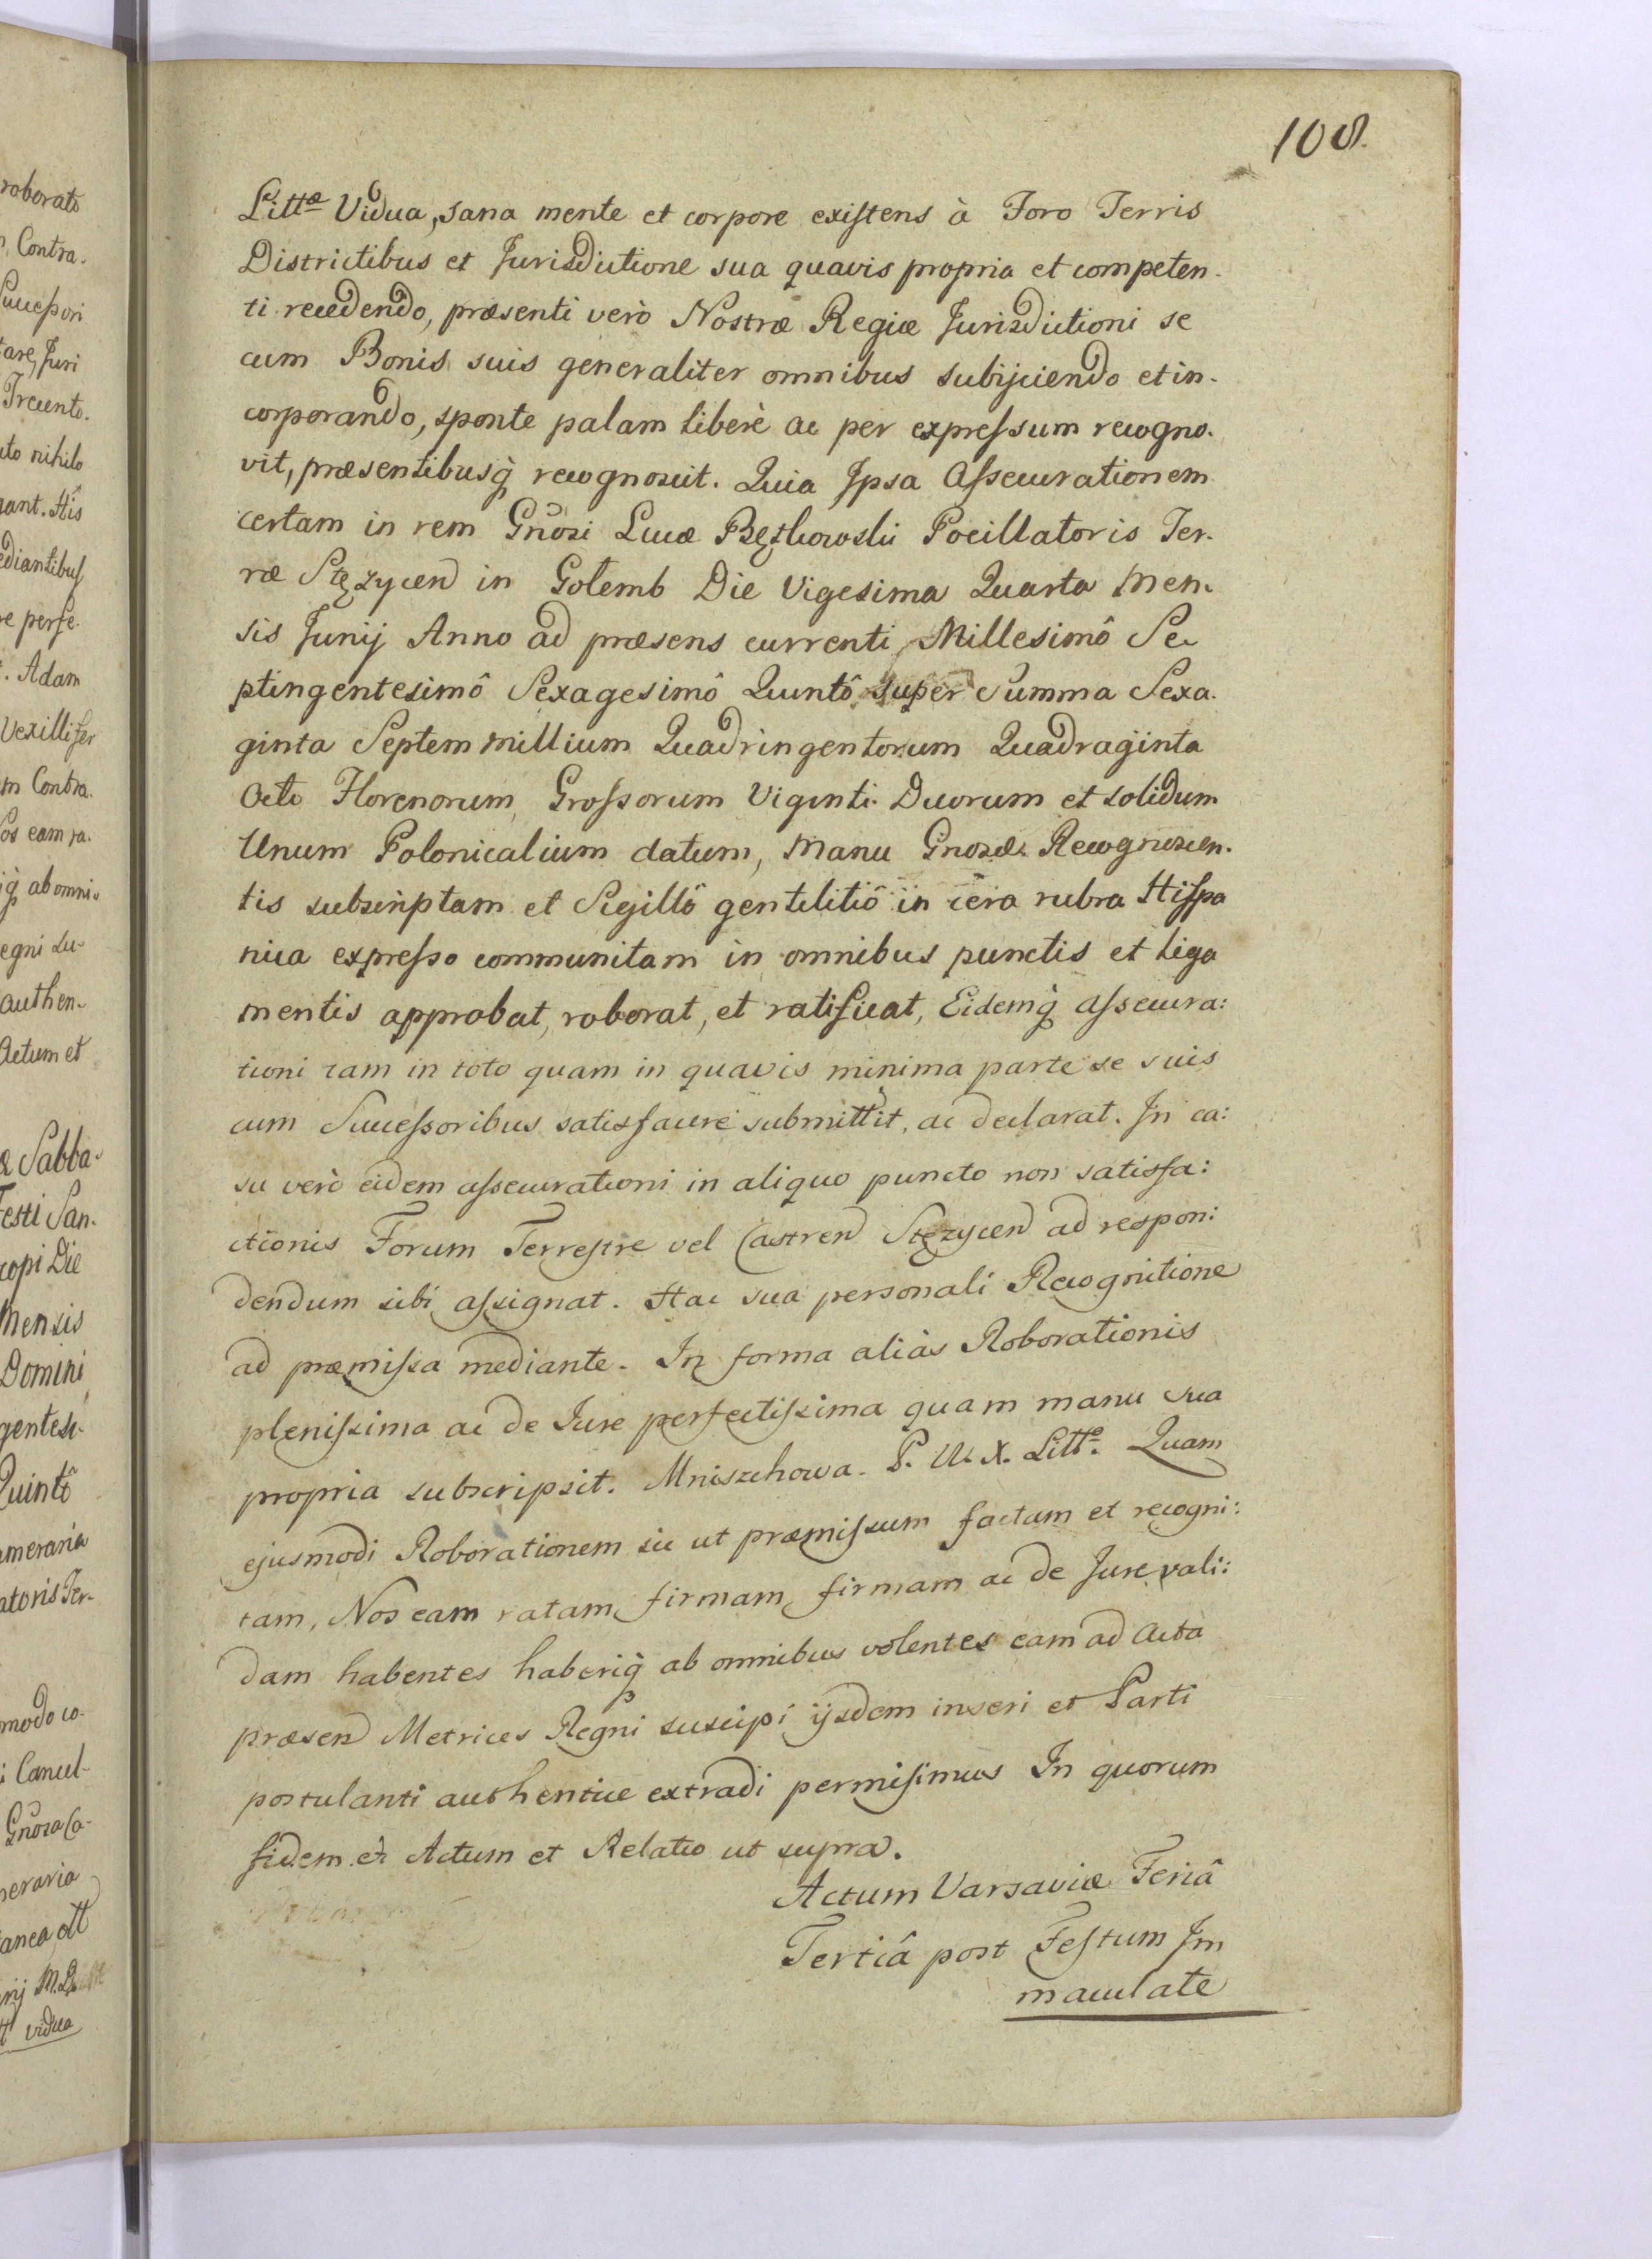 108.
roborato
Contra.
Successori
Juri
Trecento.
nihilo
Adam
Vexillifer
Contra.
ab omni
authen-
Actum et
Sabba-
Festi San-
Die
Mensis
Domini
Quintô
vidua
Littæ Vidua, sana mente et corpore existens à Foro Terris
Districtibus et Jurisdictione sua quavis propria et competen-
ti recedendo, præsenti verò Nostræ Regiæ Jurisdictioni se
cum Bonis suis generaliter omnibus subijciendo et in-
corporando, sponte palam liberè ac per expressum recogno-
vit, præsentibusq̀ recognoscit. Quia Ipsa Assecurationem
certam in rem Gnosi Lucæ Bętkowski Pocillatoris Ter-
ræ Stęzycen in Golemb Die Vigesima Quarta Men-
sis Junij Anno ad præsens currenti Millesimô Se-
ptingentesimô Sexagesimô Quintô super Summa Sexa-
ginta Septem Millium Quadringentorum Quadraginta
Octo Florenorum Grossorum Viginti Duorum et solidum
Unum Polonicalium datum, Manu Gnosæ Recognoscen-
tis subscriptam et Sigillô gentilitiô in cera rubra Hispa
nica expresso communitam in omnibus punctis et liga
mentis approbat, roborat, et ratificat, Eidemq̀ assecura:
tioni tam in toto quam in quavis minima parte se suis
cum Successoribus satisfacere submittit, ac declarat. In ca:
su verò eidem assecurationi in aliquo puncto non satisfa:
ctionis Forum Terrestre vel Castren Stęzycen ad respon:
dendum sibi assignat. Hac sua personali Recognitione
ad præmissa mediante. In forma aliàs Roborationis
plenissima ac de Iure perfectissima quam manu sua
propria subscripsit. Mniszchowa. P. W. X. Litte. Quam
ejusmodi Roborationem sic ut præmissum factam et recogni:
tam, Nos eam ratam firmam, firmam ac de Jure vali:
dam habentes haberiq̀ ab omnibus volentes eam ad Acta
præsen Metrices Regni suscipi ijsdem inseri et Parti
postulanti authentice extradi permisimus In quorum
fidem et Actum et Relatio ut supra.
Actum Varsaviæ Feriâ
Tertiâ post Festum Im
maculate